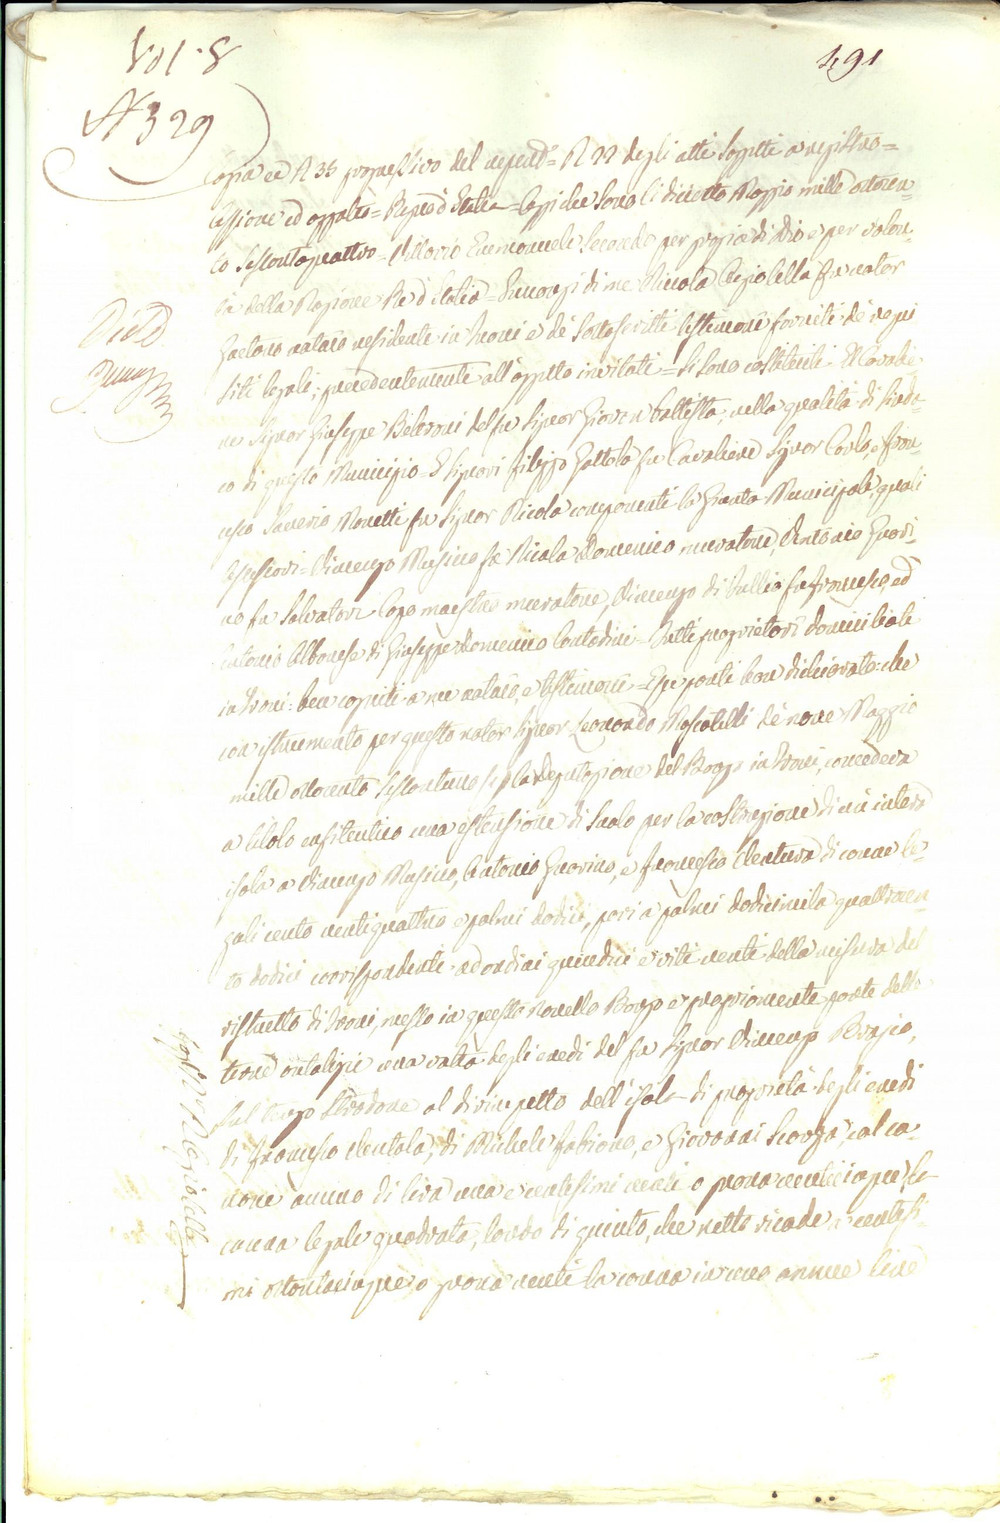 Vol. 8
491
N 329
Copia = N 35 progressivo del repert.o = N 22 degli atti soggetti a registro =
cessione ed appalto = Regno d'Italia = Oggi che sono li diciotto Maggio mille ottocen
to sessantaquattro = Vittorio Emmanuele Secondo per grazia di Dio e per volon
tà della Nazione Re d'Italia = Innanzi di me Nicola Capolella fu notar
Gaetano notaio residente in Troni e de' sottoscritti testimoni forniti de' requi
siti legali; precedentemente all'oggetto invitati = Si sono costituiti = Il Cavalie
re Signor Giuseppe Beltrani del fu Signor Giovan Battista, nella qualità di Sinda
co di questo Municipio = E Signori Filippo Fattolo fu Cavaliere Signor Carlo, e Fran
cesco Saverio Nonetti fu Signor Nicola componenti la Giunta Municipale, quali
Assessori = Vincenzo Musino fu Nicola Domenico muratore, Antonio Guari
no fu Salvatore Capo maestro muratore, Vincenzo di Tullio fu Francesco, ed
Antonio Albanese di Giuseppe Domenico Contadini = Tutti proprietari domiciliati
in Troni: ben cogniti a me notaio, e testimoni = Esse parti han dichiarato: che
con istrumento per questo notar Signor Leonardo Moscatelli de' nove Maggio
mille ottocento sessantuno la deputazione del Borgo in Troni, concedeva
a titolo enfiteutico una estensione di suolo per la costruzione di un'intera
isola a Vincenzo Musino, Antonio Guarino, e Francesco Ventura di canne le
gali cento ventiquattro e palmi dodici, pari a palmi dodicimila quattrocen
to dodici corrispondenti ad ordini quindici e viti venti della misura del
ristretto di Troni, messo in questo novello Borgo e propriamente parte delle
terre ortalizie una volta degli eredi del fu Signor Vincenzo
sul largo Stradone al dirimpetto dell'isola di proprietà degli eredi
di Francesco Ventola, di Michele Fabiano, e Giovanni Scorza, al ca
none annuo di lira una e centesimi venti o grana venticinque la
canna legale quadrata, lordo di quinto, che netto ricade a centesi
mi ottantacinque o grana venti la canna in uno annue lire